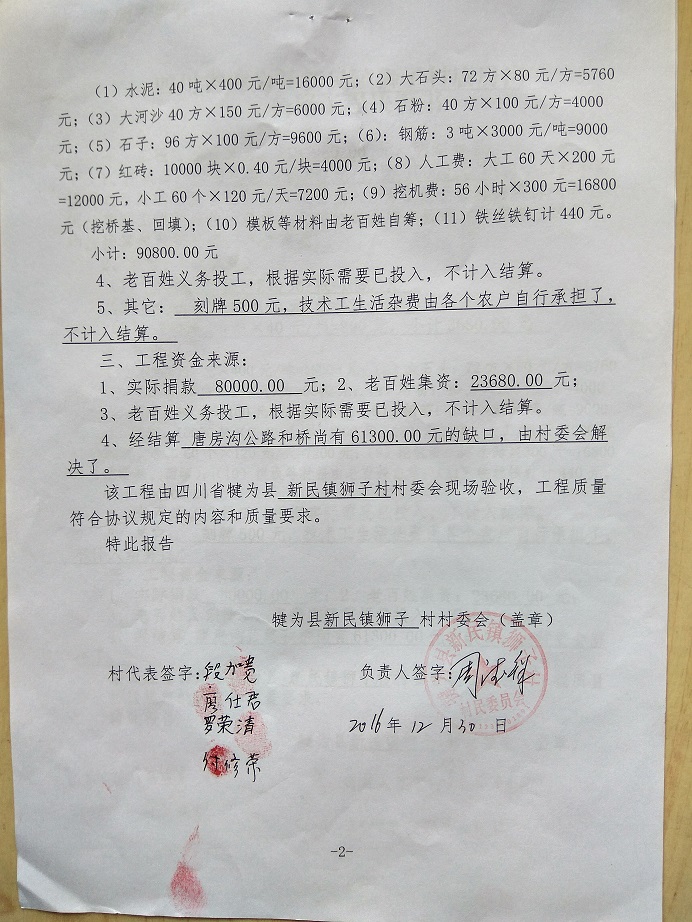 （1）水泥：40吨×400元/吨=16000元；（2）大石头：72方×80元/方=5760
元；（3）大河沙40方×150元/方=6000元；（4）石粉：40方×100元/方=4000
元；（5）石子：96方×100元/方=9600元；（6）：钢筋：3吨×3000元/吨=9000
元；（7）红砖：10000块×0.40元/块=4000元；（8）人工费：大工60天×200元
=12000元，小工60个×120元/天=7200元；（9）挖机费：56小时×300元=16800
元（挖桥基、回填）；（10）模板等材料由老百姓自筹；（11）铁丝铁钉计440元。
小计：90800.00元
4、老百姓义务投工，根据实际需要已投入，不计入结算。
5、其它： 刻牌500元，技术工生活杂费由各个农户自行承担了，
不计入结算。
三、工程资金来源：
1、实际捐款 80000.00 元；2、老百姓集资：23680.00元；
3、老百姓义务投工，根据实际需要已投入，不计入结算。
4、经结算 唐房沟公路和桥尚有61300.00元的缺口，由村委会解
决了。
该工程由四川省犍为县 新民镇狮子村村委会现场验收，工程质量
符合协议规定的内容和质量要求。
特此报告
犍为县新民镇狮子 村村委会（盖章）
村代表签字：段加亮 负责人签字：周
廖仕君
罗荣清 2016年12月30日
付修荣
县新民镇狮子村
村民委员会
-2-